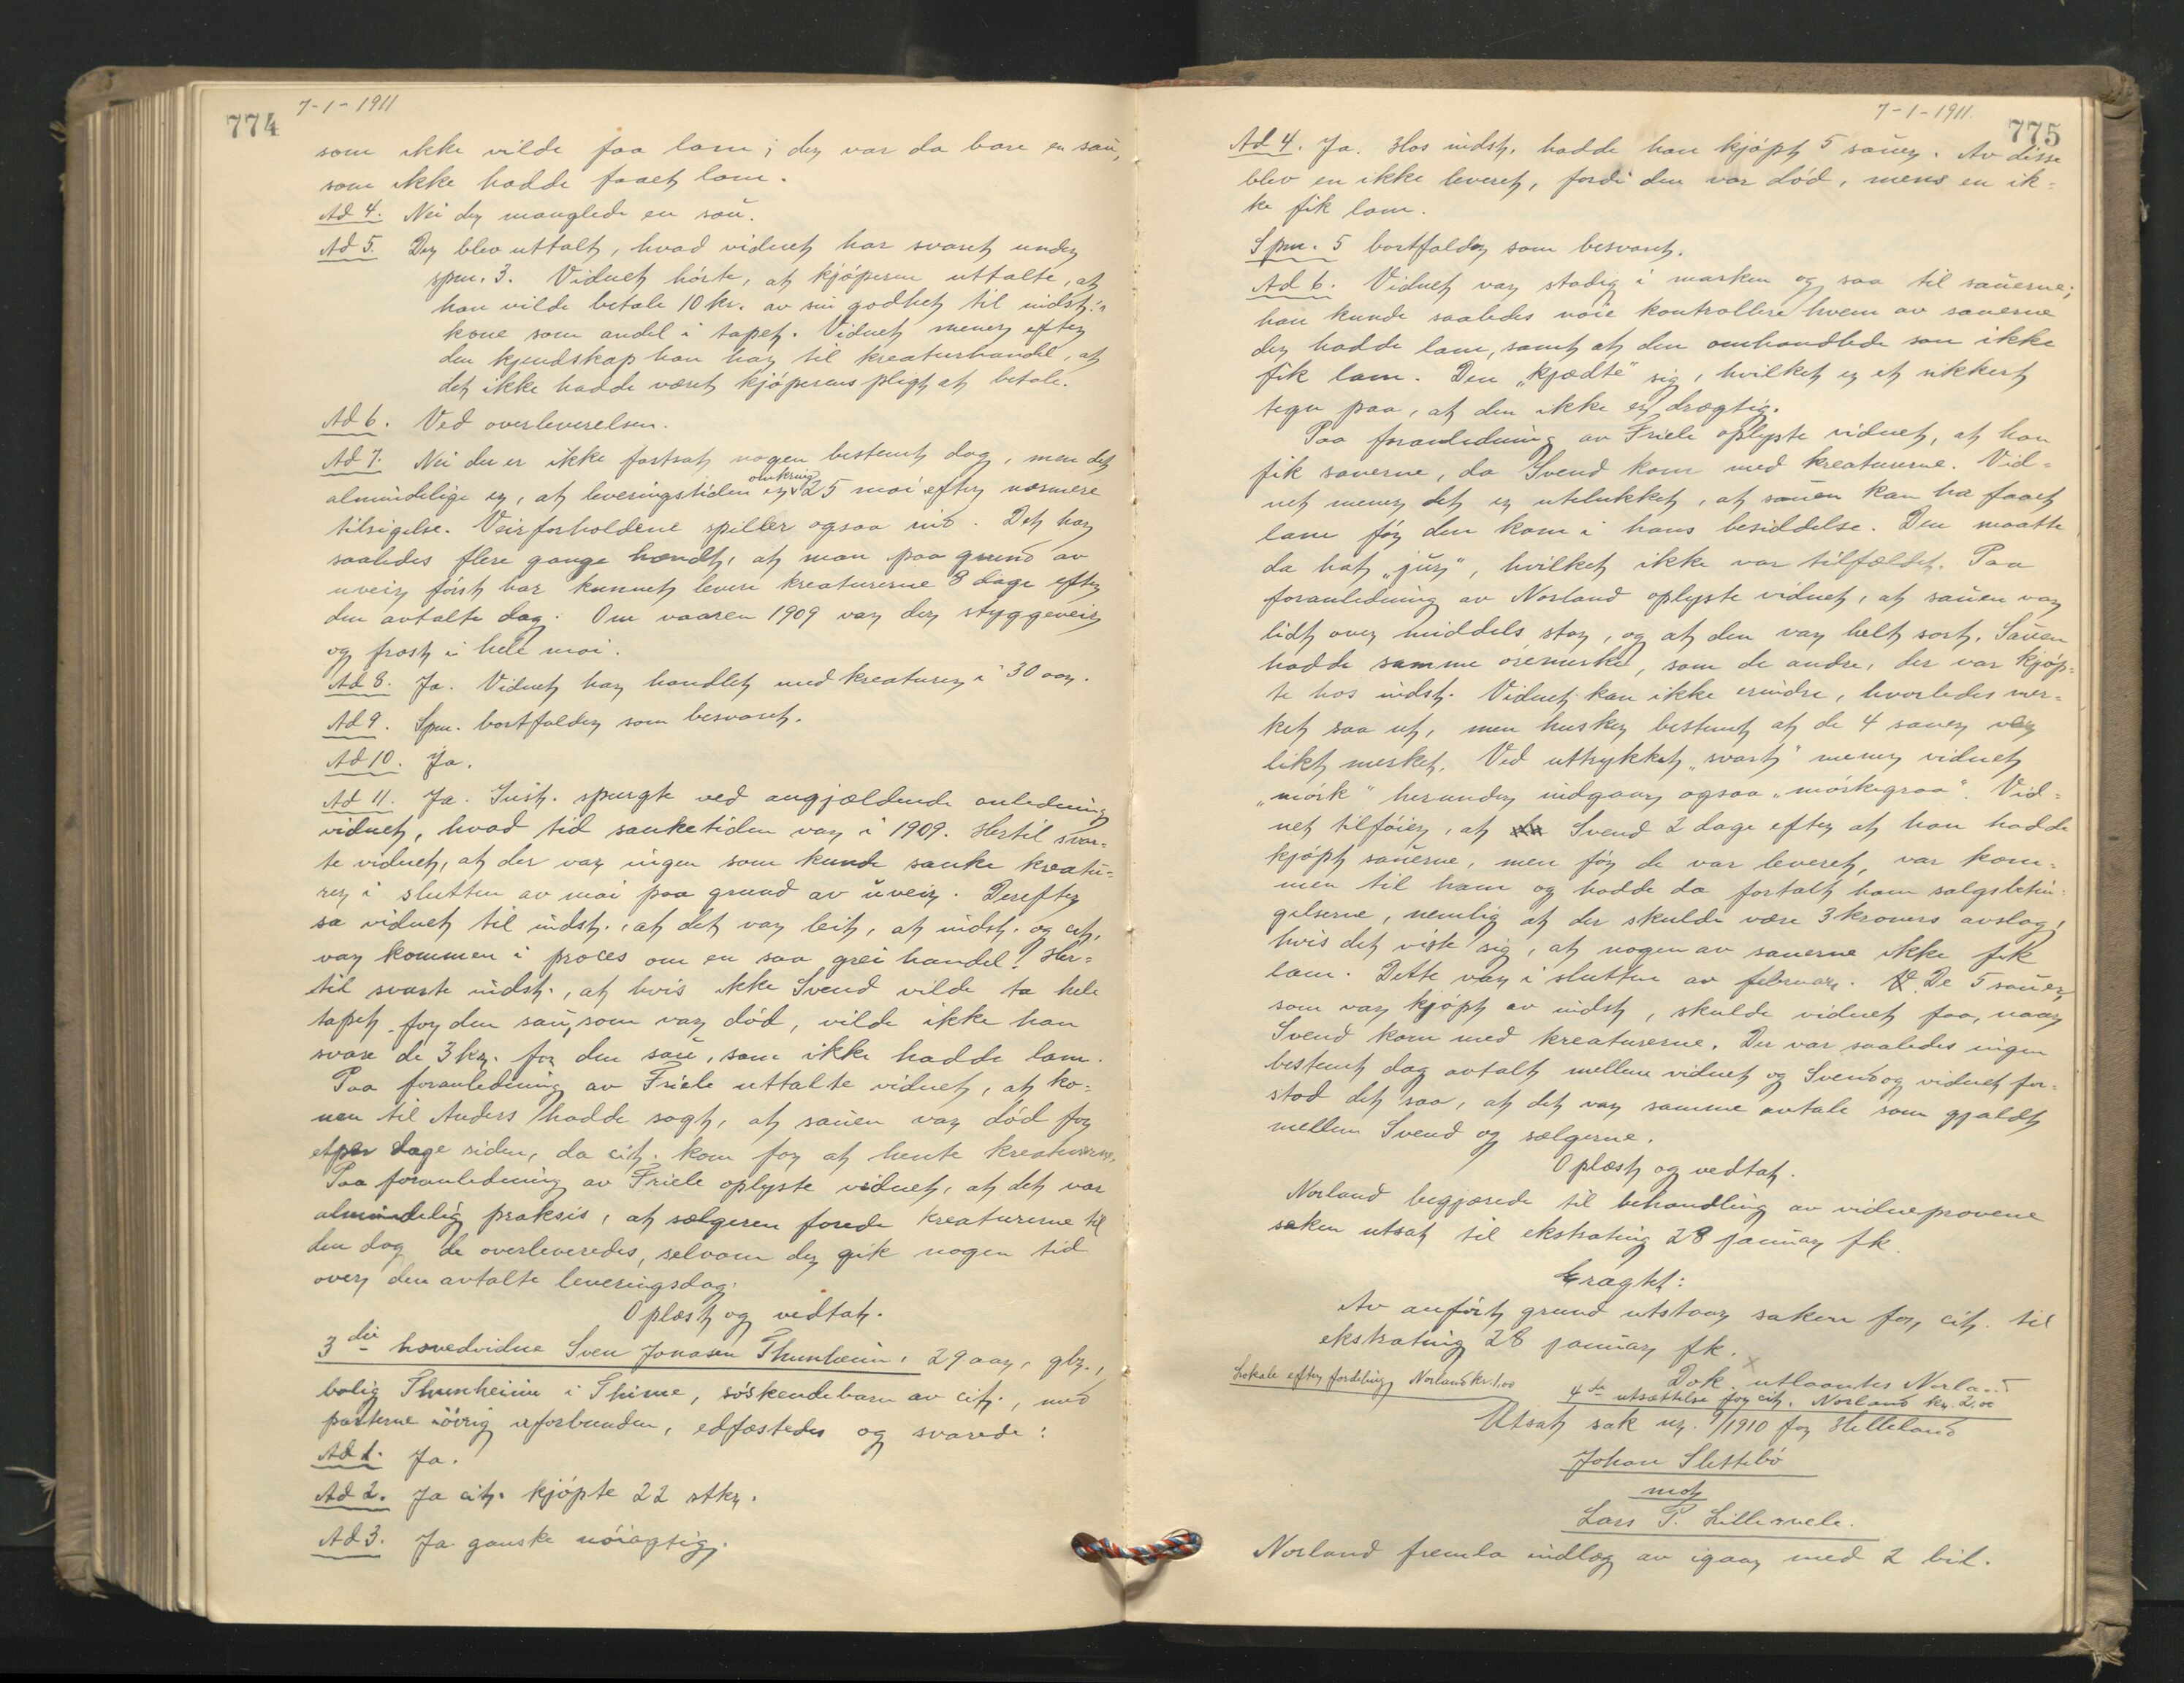 774
7-1-1911
som ikke vilde faa lam; der var da bare en sau,
som ikke hadde faaet lam.
Ad 4. Nei der manglede en sau.
Ad 5. Der blev uttalt, hvad vidnet har svaret under
spm. 3. Vidnet hørte, at kjøperne uttalte, at
han vilde betale 10 kr. av sin godhet til indst.'s
kone som andel i tapet. Vidnet mener efter
den kjendskap han har til kreaturhandel, at
det ikke hadde været kjøperens pligt at betale.
Ad 6. Ved overleverelsen.
Ad 7. Nei der er ikke fastsat nogen bestemt dag, men det
almindelige er, at leveringstiden er omkring 25 mai efter nærmere
tilsigelse. Veirforholdene spiller ogsaa ind. Det har
saaledes flere gange hændt, at man paa grund av
uveir først har kunnet levere kreaturerne 8 dage efter
den avtalte dag. Om vaaren 1909 var der styggeveir
og frost i hele mai.
Ad 8. Ja. Vidnet har handlet med kreaturer i 30 aar.
Ad 9. Spm. bortfalder som besvaret.
Ad 10. Ja.
Ad 11. Ja. Inst. spurgte ved angjældende anledning
vidnet, hvad tid sanketiden var i 1909. Hertil svar-
te vidnet, at der var ingen som kunde sanke kreatu-
rer i slutten av mai paa grund av uveir. Derefter
sa vidnet til indst., at det var leit, at indst. og cit.
var kommen i proces om en saa grei handel! Her-
til svarte indst., at hvis ikke Svend vilde ta hele
tapet for den sau, som var død, vilde ikke han
svare de 3 kr. for den sau, som ikke hadde lam.
Paa foranledning av Friele uttalte vidnet, at ko-
nen til Anders hadde sagt, at sauen var død for
et par dage siden, da cit. kom for at hente kreaturerne.
Paa foranledning av Friele oplyste vidnet, at det var
almindelig praksis, at sælgeren forede kreaturerne til
den dag de overleveredes, selvom der gik nogen tid
over den avtalte leveringsdag.
Oplæst og vedtat.
3die hovedvidne Sven Jonasen Thunheim, 29 aar, gbr.,
bolig Thunheim i Thime, søskendebarn av cit., med
parterne iøvrig uforbunden, edfæstedes og svarede:
Ad 1. Ja.
Ad 2. Ja cit. kjøpte 22 stkr.
Ad 3. Ja ganske nøiagtig.
7-1-1911.
775
Ad 4. Ja. Hos indst. hadde han kjøpt 5 sauer. Av disse
blev en ikke leveret, fordi den var død, mens en ik-
ke fik lam.
Spm. 5 bortfalder som besvaret.
Ad 6. Vidnet var stadig i marken og saa til sauerne;
han kunde saaledes nøie kontrollere hvem av sauerne
der hadde lam, samt at den omhandlede sau ikke
fik lam. Den „kjædte" sig, hvilket er et sikkert
tegn paa, at den ikke er drægtig.
Paa foranledning av Friele oplyste vidnet, at han
fik sauerne, da Svend kom med kreaturerne. Vid-
net mener det er utelukket, at sauen kan ha faaet
lam før den kom i hans besiddelse. Den maatte
da hat „jur", hvilket ikke var tilfældet. Paa
foranledning av Norland oplyste vidnet, at sauen var
lidt over middels stor, og at den var helt sort. Sauen
hadde samme øremerke, som de andre, der var kjøp-
te hos indst. Vidnet kan ikke erindre, hvorledes mer-
ket saa ut, men husker bestemt at de 4 sauer var
likt merket. Ved uttrykket „svart" mener vidnet
„mørk" herunder indgaar ogsaa „mørkegraa". Vid-
net tilføier, at Svend 2 dage efter at han hadde
kjøpt sauerne, men før de var leveret, var kom-
men til ham og hadde da fortalt ham salgsbetin-
gelserne, nemlig at der skulde være 3 kroners avslag,
hvis det viste sig, at nogen av sauerne ikke fik
lam. Dette var i slutten av februar. De 5 sauer,
som var kjøpt av indst, skulde vidnet faa, naar
Svend kom med kreaturerne. Der var saaledes ingen
bestemt dag avtalt mellem vidnet og Svend og vidnet for-
stod det saa, at det var samme avtale som gjaldt
mellem Svend og sælgerne.
Oplæst og vedtat.
Norland begjærede til behandling av vidneprovene
saken utsat til ekstrating 28 januar fk.
Eragtet:
Av anført grund utstaar saken for cit. til
ekstrating 28 januar fk.
Dok. utlaantes Norland
Lokale efter fordeling Norland kr. 1,00
4de utsættelse for cit. Norland kr. 2,00
Utsat sak nr. 9/1910 for Helleland
Johan Slettebø
mot
Lars P. Lillesvele.
Norland fremla indlæg av igaar med 2 bil.